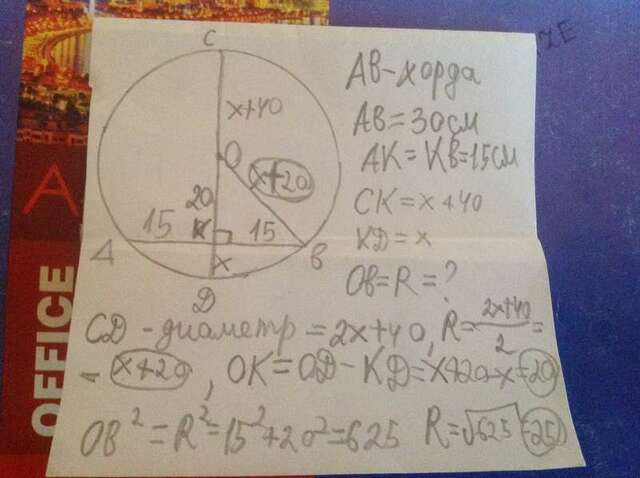 C
x+40
O
x+20
20
K
15
15
A
B
x
D
AB-хорда
AB=30см
AK=KB=15см
CK=x+40
KD=x
OB=R=?
CD-диаметр=2x+40, R=2x+40/2=
=x+20, OK=OD-KD=x+20-x=20
OB²=R²=15²+20²=625 R=√625=25
A
OFFICE